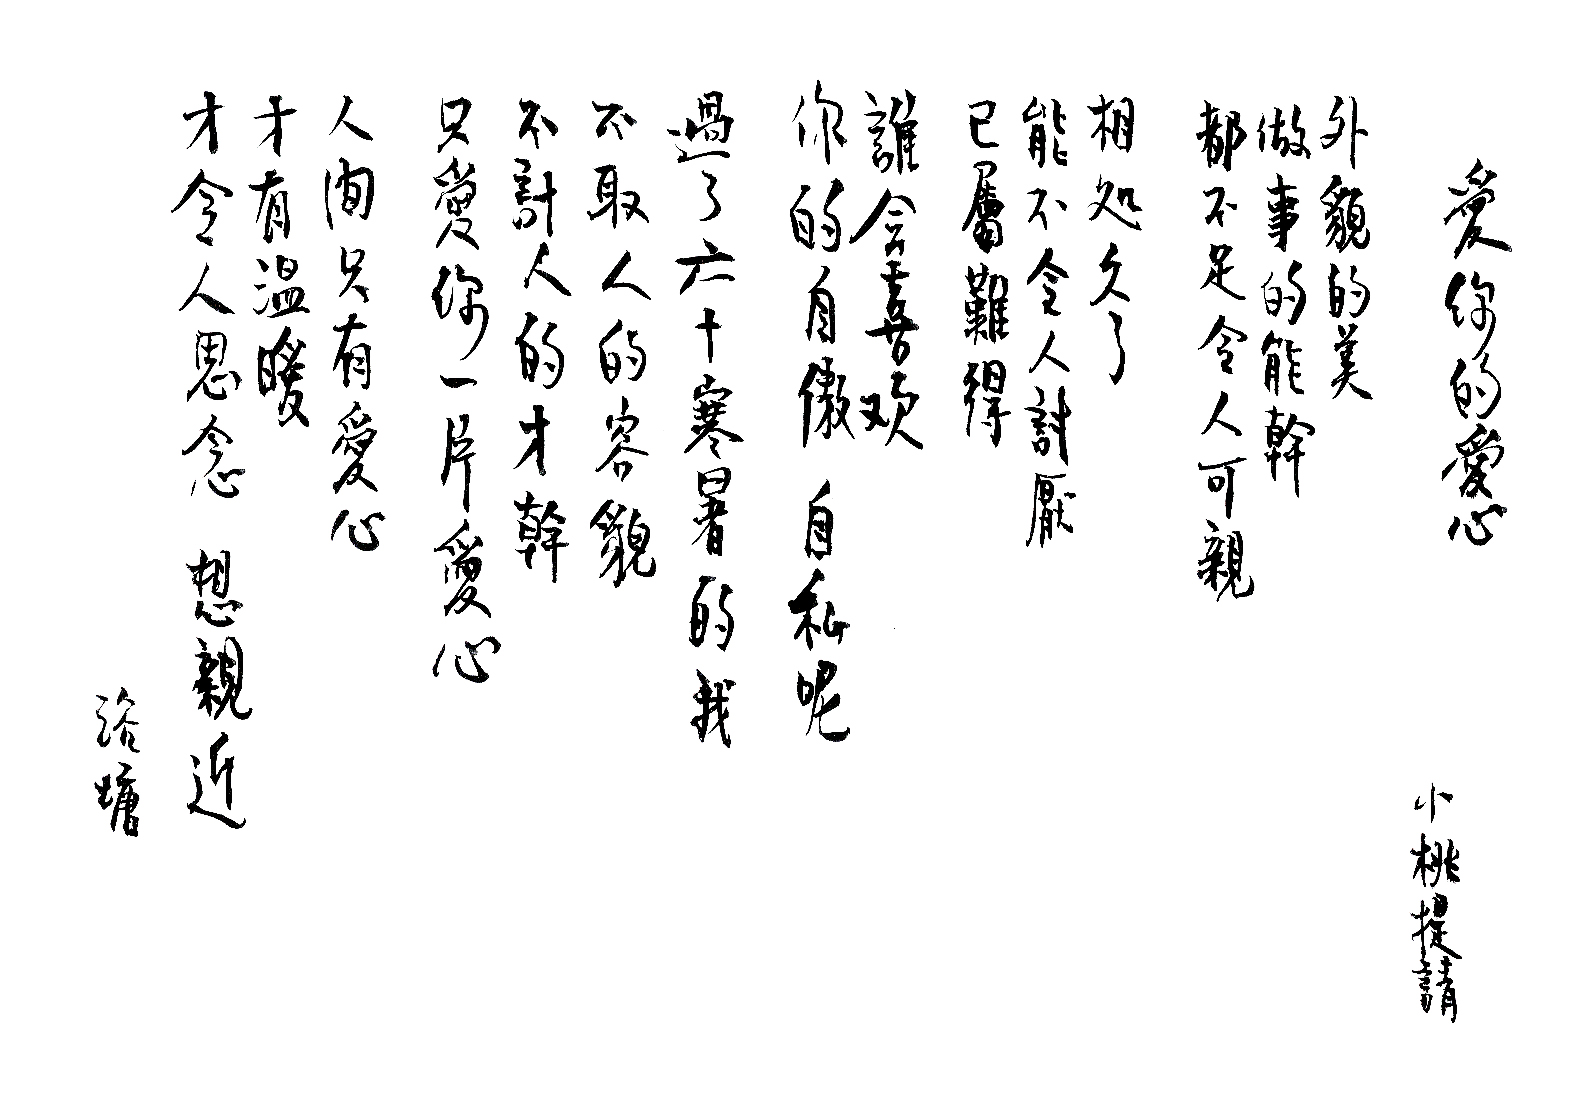 愛你的愛心
小桃提請
外貌的美
做事的能幹
都不足令人可親
相処久了
能不令人討厭
已屬難得
誰會喜欢
你的自傲 自私呢
過了六十寒暑的我
不取人的容貌
不計人的才幹
只愛你一片愛心
人间只有愛心
才有溫暖
才令人思念 想親近